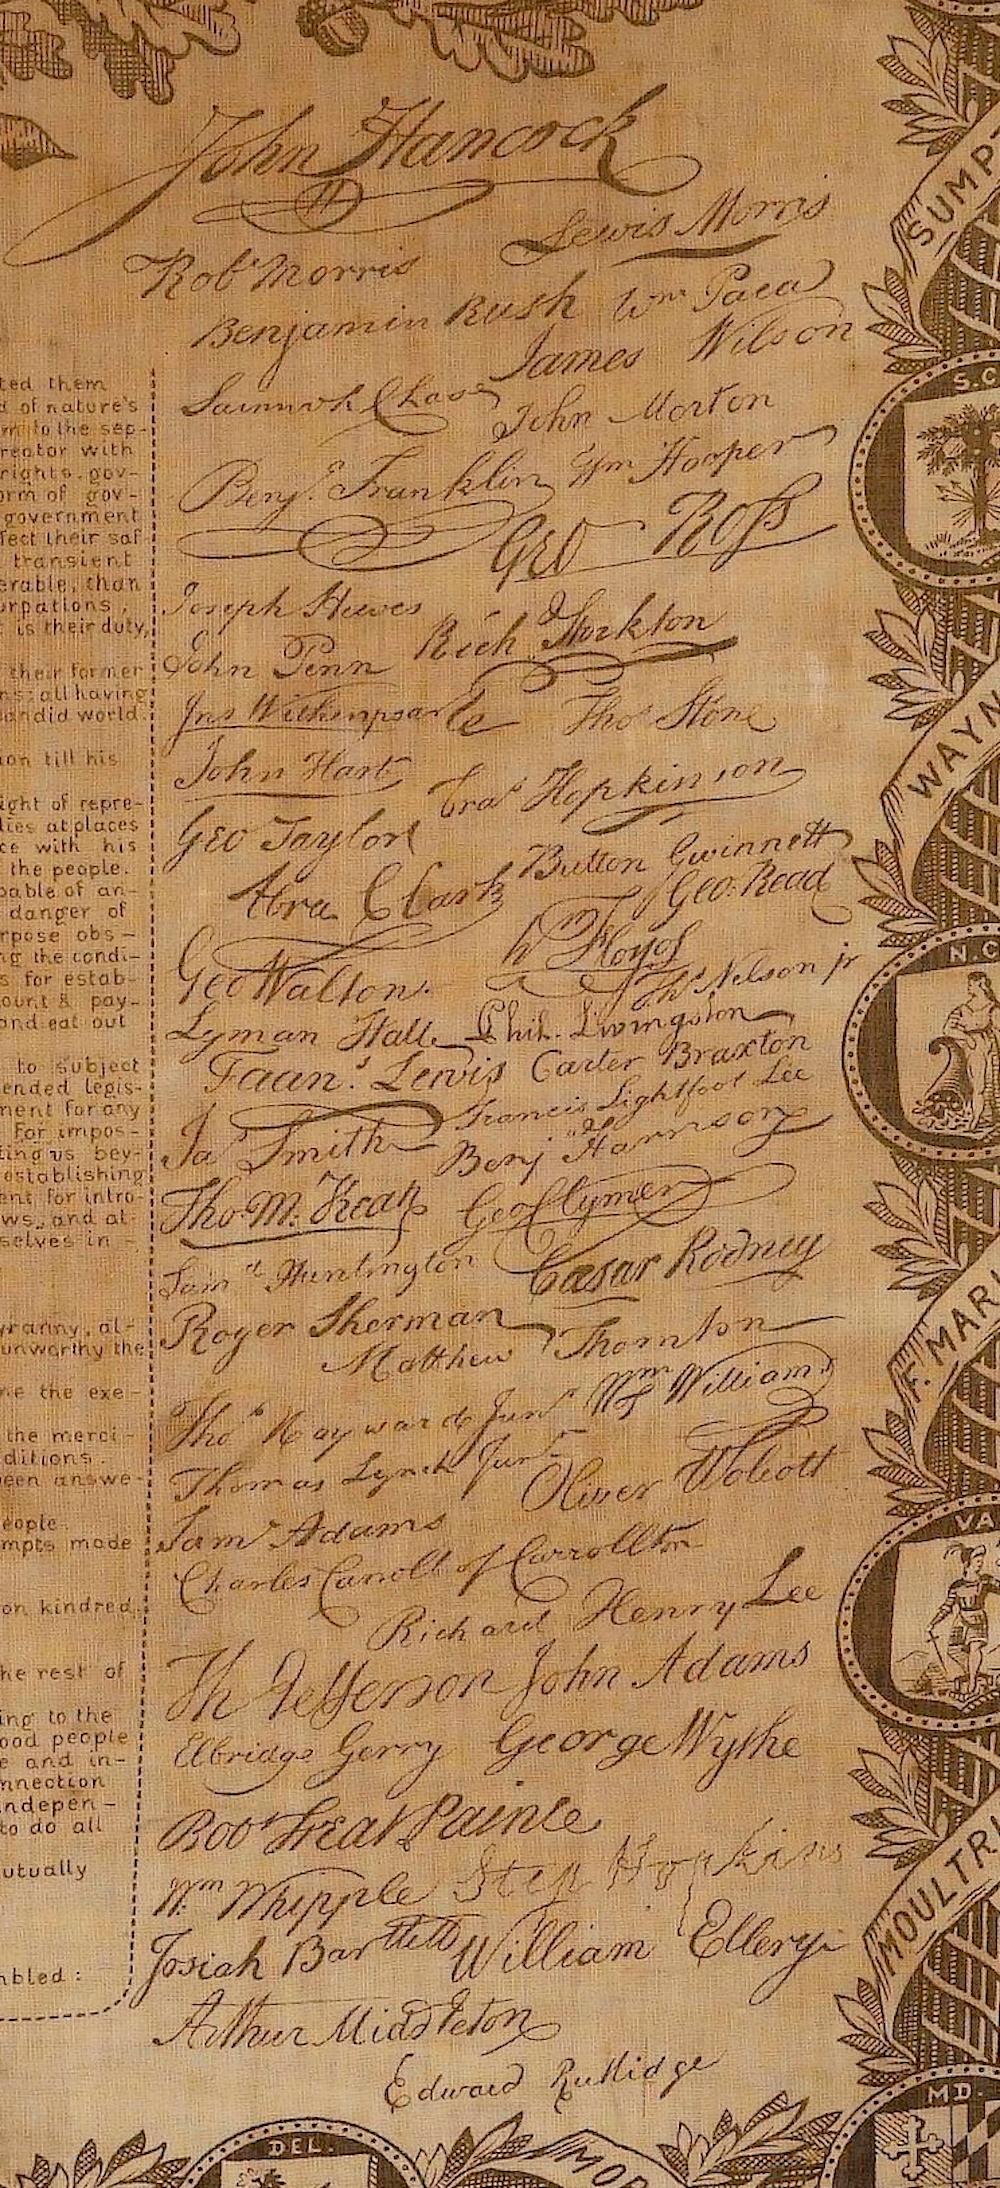 John Hancock
Lewis Morris
Robt Morris
Benjamin Rush Wm Paca
James Wilson
Samuel Chase
John Morton
Benj. Franklin Wm Hooper
Geo Ross
Joseph Hewes
Rich Stockton
John Penn
Jno Witherspoon Thos Stone
John Hart
Fras Hopkinson
Geo Taylor
Button Gwinnett
Abra Clark Geo. Read
Wm Floyd
Geo Walton. Ths Nelson jr
Lyman Hall Phil. Livingston
Faans Lewis Carter Braxton
Francis Lightfoot Lee
Jas Smith Benj Harrison
Tho M. Kean Geo Clymer
Samel Huntington Casar Rodney
Roger Sherman
Matthew Thornton
Wm Williams
Thos Hayward Junr
Thomas Lynch Junr
Oliver Wolcott
Sam Adams
Charles Carroll of Carrollton
Richard Henry Lee
Th Jefferson John Adams
Elbridge Gerry George Wythe
Robt Treat Paine
Wm Whipple Step Hopkins
Josiah Bartlett William Ellery
Arthur Middleton
Edward Rutlidge
ted them
d of nature's
m to the sep-
reator with
rights, gov-
orm of gov-
government
fect their saf
transient
erable, than
urpations,
is their duty,
their former
ns: all having
andid world.
ion till his
ight of repre-
lies at places
ce with his
the people.
pable of an-
danger of
rpose obs-
ng the condi-
s for estab-
ount & pay-
and eat out
to subject
ended legis-
ment for any
For impos-
ting us bey-
establishing
ent for intro-
ws, and al-
selves in -
yranny, al-
unworthy the
ne the exe-
the merci-
ditions.
een answe-
eople.
mpts made
on kindred.
he rest of
ing to the
ood people
e and in-
nnection
indepen-
to do all
utually
mbled:
SUMP
S.C
WAYN
N.C
F. MARI
VA
MOULTRI
MD.
DEL.
MOR